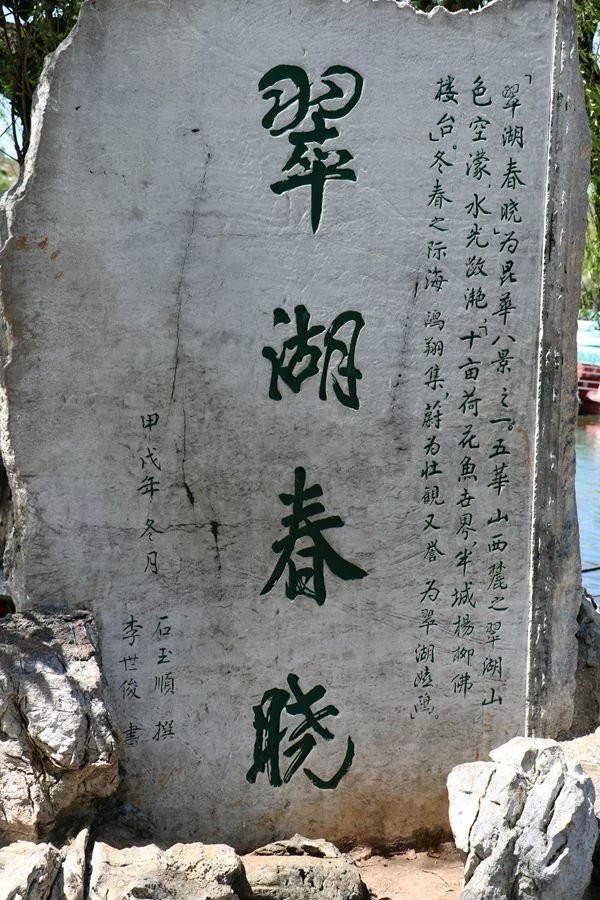 「翠湖春晓」为昆華八景之一。五華山西麓之翠湖山
色空濛,水光潋滟,“十亩荷花魚世界,半城楊柳佛
楼台。”冬春之际海鸿翔集,蔚为壮觀又誉为“翠湖嬉鷗”。
翠湖春晓
甲戌年冬月
石玉順 撰
李世俊 書